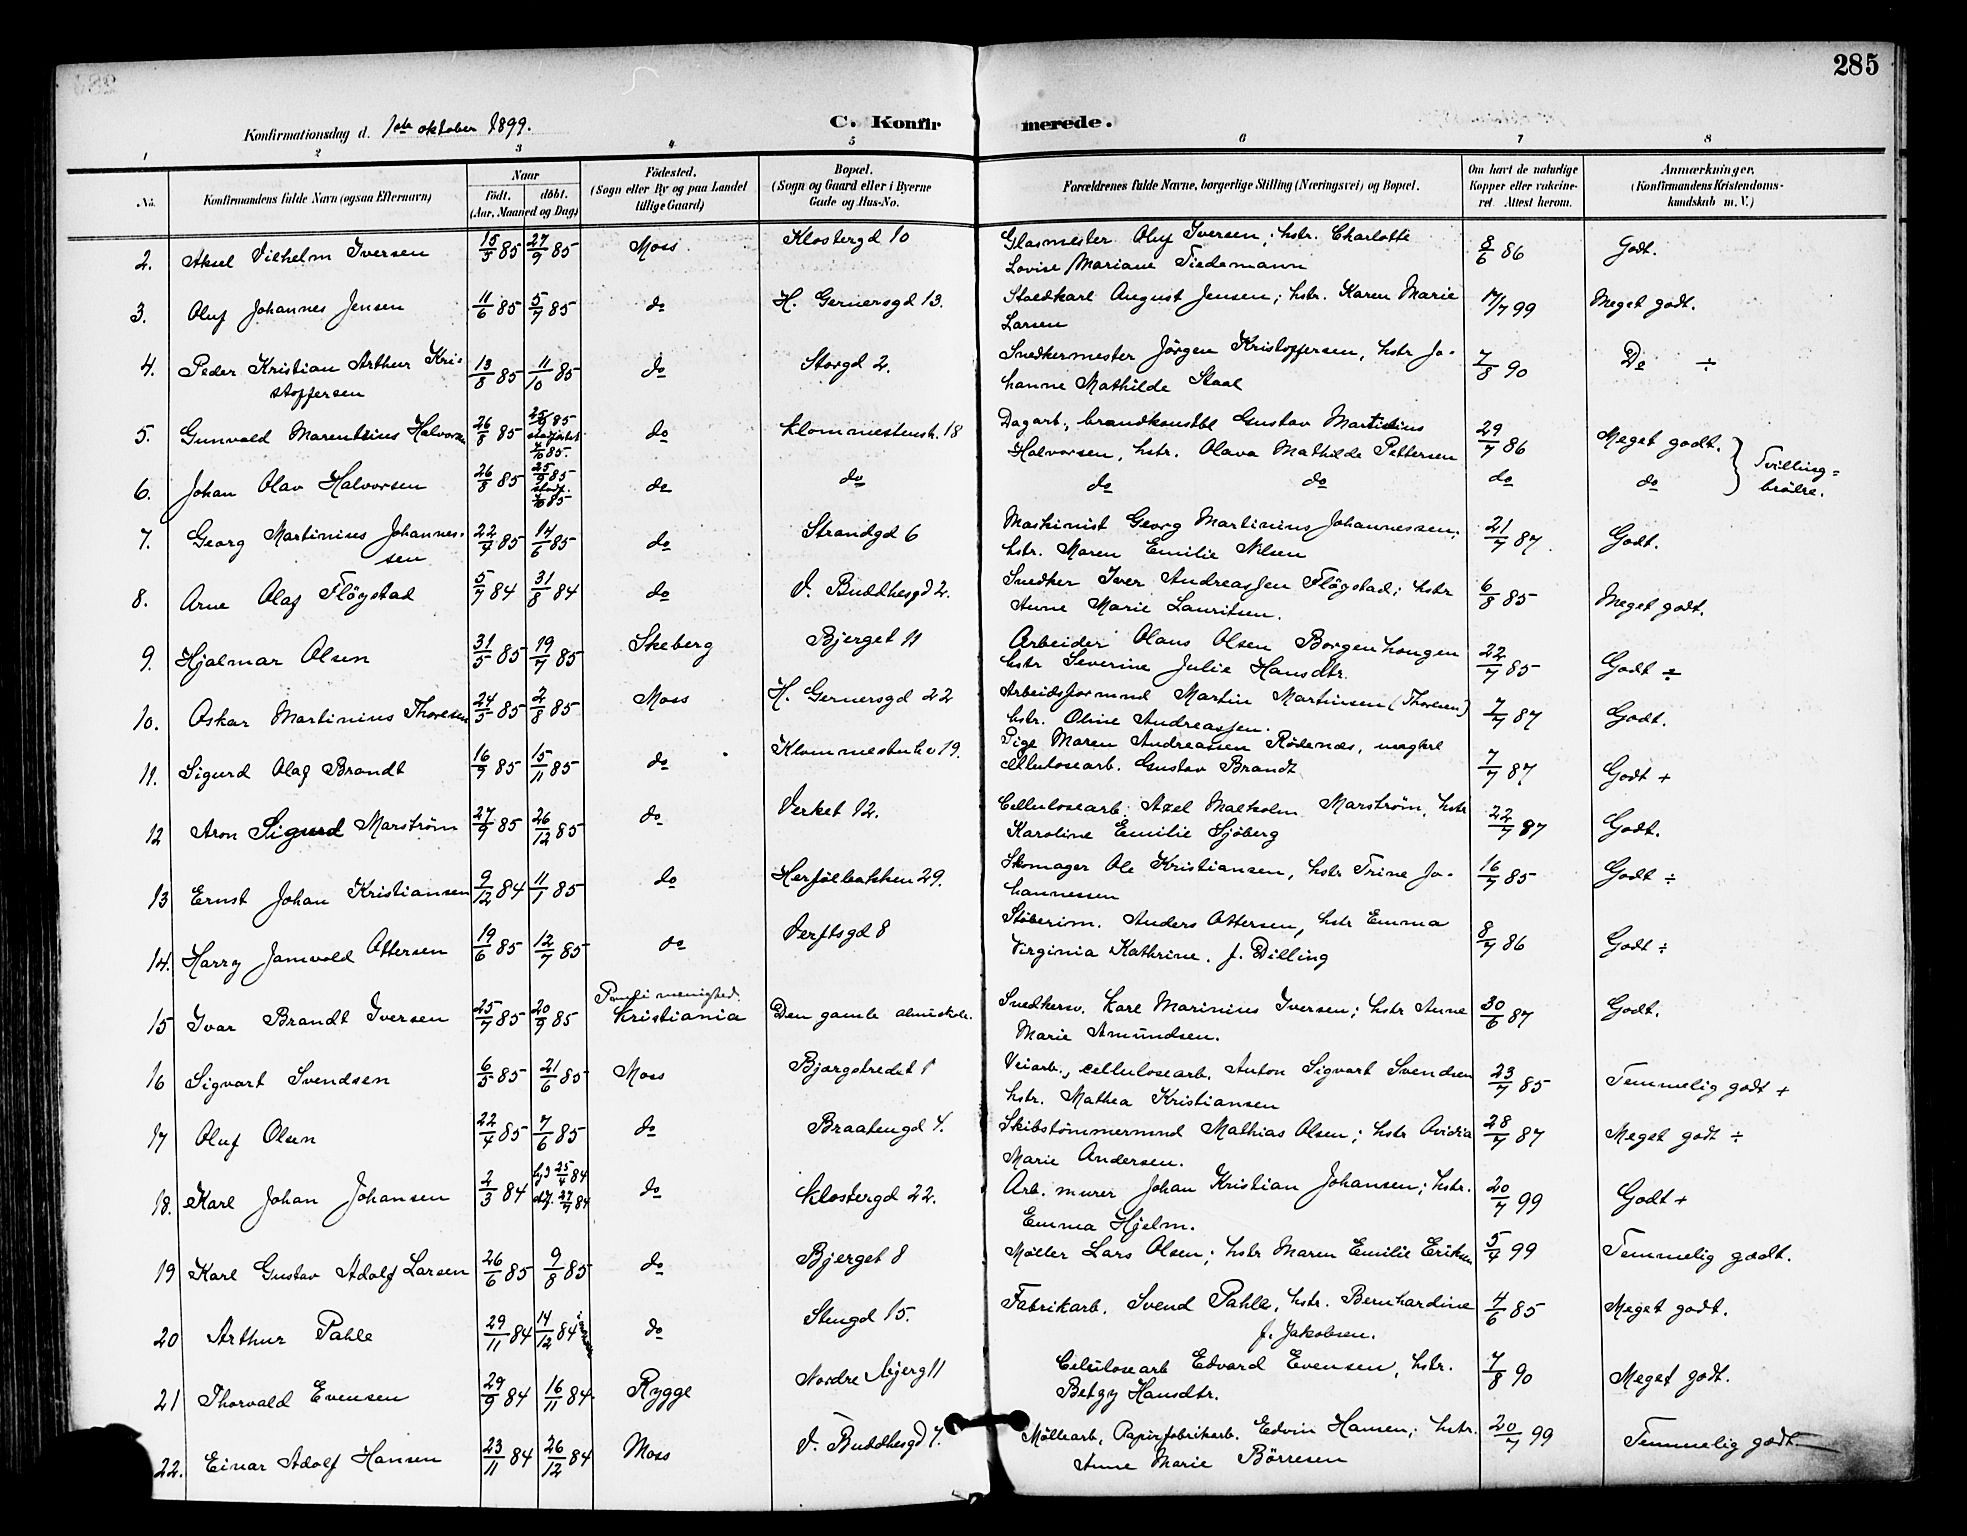 285
Konfirmationsdag d. 1ste oktober 1899.
C. Konfirmerede.
1 2 3 4 5 6 7 8
No. Konfirmandens fulde Navn (ogsaa Efternavn) Naar født. døbt. (Aar, Maaned og Dag) Fødested. (Sogn eller By og paa Landet tillige Gaard) Bopæl. (Sogn og Gaard eller i Byerne Gade og Hus-No. Forældrenes fulde Navne, borgerlige Stilling (Næringsvei) og Bopæl. Om havt de naturlige Kopper eller vakcineret. Attest herom. Anmærkninger. (Konfirmandens Kristendomskundskab m. V.)
2. Aksel Vilhelm Iversen 15/5 85 27/9 85 Moss Klostergd 10 Glasmester Oluf Iversen; hstr. Charlotte 8/6 86 Godt.
Lovise Mariane Tiedemann
3. Oluf Johannes Jensen 11/6 85 5/7 85 do H. Gernersgd 13. Staldkarl August Jensen; hstr. Karen Marie 17/7 99 Meget godt.
Larsen
4. Peder Kristian Arthur Kri- 13/8 85 11/10 85 do Storgd 2. Snedkermester Jörgen Kristoffersen, hstr Jo- 7/8 90 Do ÷
stoffersen hanne Mathilde Staal
5. Gunvald Marentsius Halvorsen 26/8 85 25/9 85 do Klommestensb. 18 Dagarb., brandkonstbl Gustav Martinius 29/7 86 Meget godt.
Halvorsen, hstr. Olava Mathilde Pettersen
6. Johan Olav Halvorsen 26/8 85 25/9 85 do do do do do do Tvilling-
brödre.
7. Georg Martinius Johannes- 22/4 85 14/6 85 do Strandgd 6 Maskinist Georg Martinius Johannessen; 21/7 87. Godt.
sen hstr. Maren Emilie Nilsen
8. Arne Olaf Flögstad 5/7 84 31/8 84 do V. Buddhesgd 2. Snedker Iver Andreassen Flögstad; hstr 6/8 85 Meget godt.
Anne Marie Lauritsen.
9. Hjalmar Olsen 31/5 85 19/7 85 Skeberg Bjerget 11 Arbeider Olaus Olsen Borgenhougen 22/7 85 Godt ÷
hstr Severine Julie Hansdtr.
10. Oskar Martinius Thoresen 24/5 85 2/8 85 Moss H. Gernersgd 22 Arbeidsformnd Martin Martinsen (Thoresen) 7/7 87 Godt.
hstr. Oline Andreassen.
11. Sigurd Olaf Brandt 16/9 85 15/11 85 do 19. Pige Maren Andreassen Rödenæs, 7/7 87 Godt +
cellulosearb. Gustav Brandt
12 Aron Sigurd Marström 27/9 85 26/12 85 do Verket 12. Cellulosearb. Axel Malkolm Marström, hstr 22/7 87 Godt.
Karoline Emilie Sjöberg
13 Ernst Johan Kristiansen 9/12 84 11/1 85 do Herföelbakken 29. Skomager Ole Kristiansen, hstr Trine Jo- 16/7 85 Godt ÷
hannessen
14. Harry Jamvold Ottersen 19/6 85 12/7 85 do Verftsgd 8 Stöberim. Anders Ottersen, hstr Emma 8/7 86 Godt ÷
Virginia Kathrine. f. Dilling
15 Ivar Brandt Iversen 25/7 85 20/9 85 Pauli menighed. Kristiania Den gamle almuskole. Snedkersv. Karl Marinius Iversen; hstr Anne 30/6 87 Godt.
Marie Amundsen.
16 Sigvart Svendsen 6/5 85 21/6 85 Moss Bjørgstredet 1 Veiarb., cellulosearb. Anton Sigvart Svendsen 23/7 85 Temmelig godt +
hstr. Mathea Kristiansen
17 Oluf Olsen 22/4 85 7/6 85 do Braatengd 4. Skibstömmermnd Mathias Olsen; hstr Avidia 28/7 87 Meget godt ÷
Marie Andersen.
18. Karl Johan Johansen 2/3 84 hjd 25/4 84 27/7 84 do Klostergd 22. Arb. murer Johan Kristian Johansen; hstr. 20/7 99 Godt +
Emma Hjelm.
19 Karl Gustav Adolf Larsen 26/6 85 9/8 85 do Bjerget 8 Møller Lars Olsen; hstr Maren Emilie Eriksen 5/4 99 Temmelig godt.
20 Arthur Pahle 29/11 84 14/12 84 do Stengd 15. Fabrikarb. Svend Pahle, hstr. Bernhardine 4/6 85 Meget godt.
f. Jakobsen.
21 Thorvald Evensen 29/9 84 16/11 84 Rygge Nordre bjerg 11 Celulosearb Edvard Evensen, hstr. 7/8 90 Meget godt.
Betzy Hansdtr.
22. Einar Adolf Hansen 23/11 84 26/12 84 Moss V. Buddhesgd 7. Möllearb, Papirfabrikarb. Edvin Hansen; hstr. 20/7 99 Temmelig godt.
Anne Marie Börresen